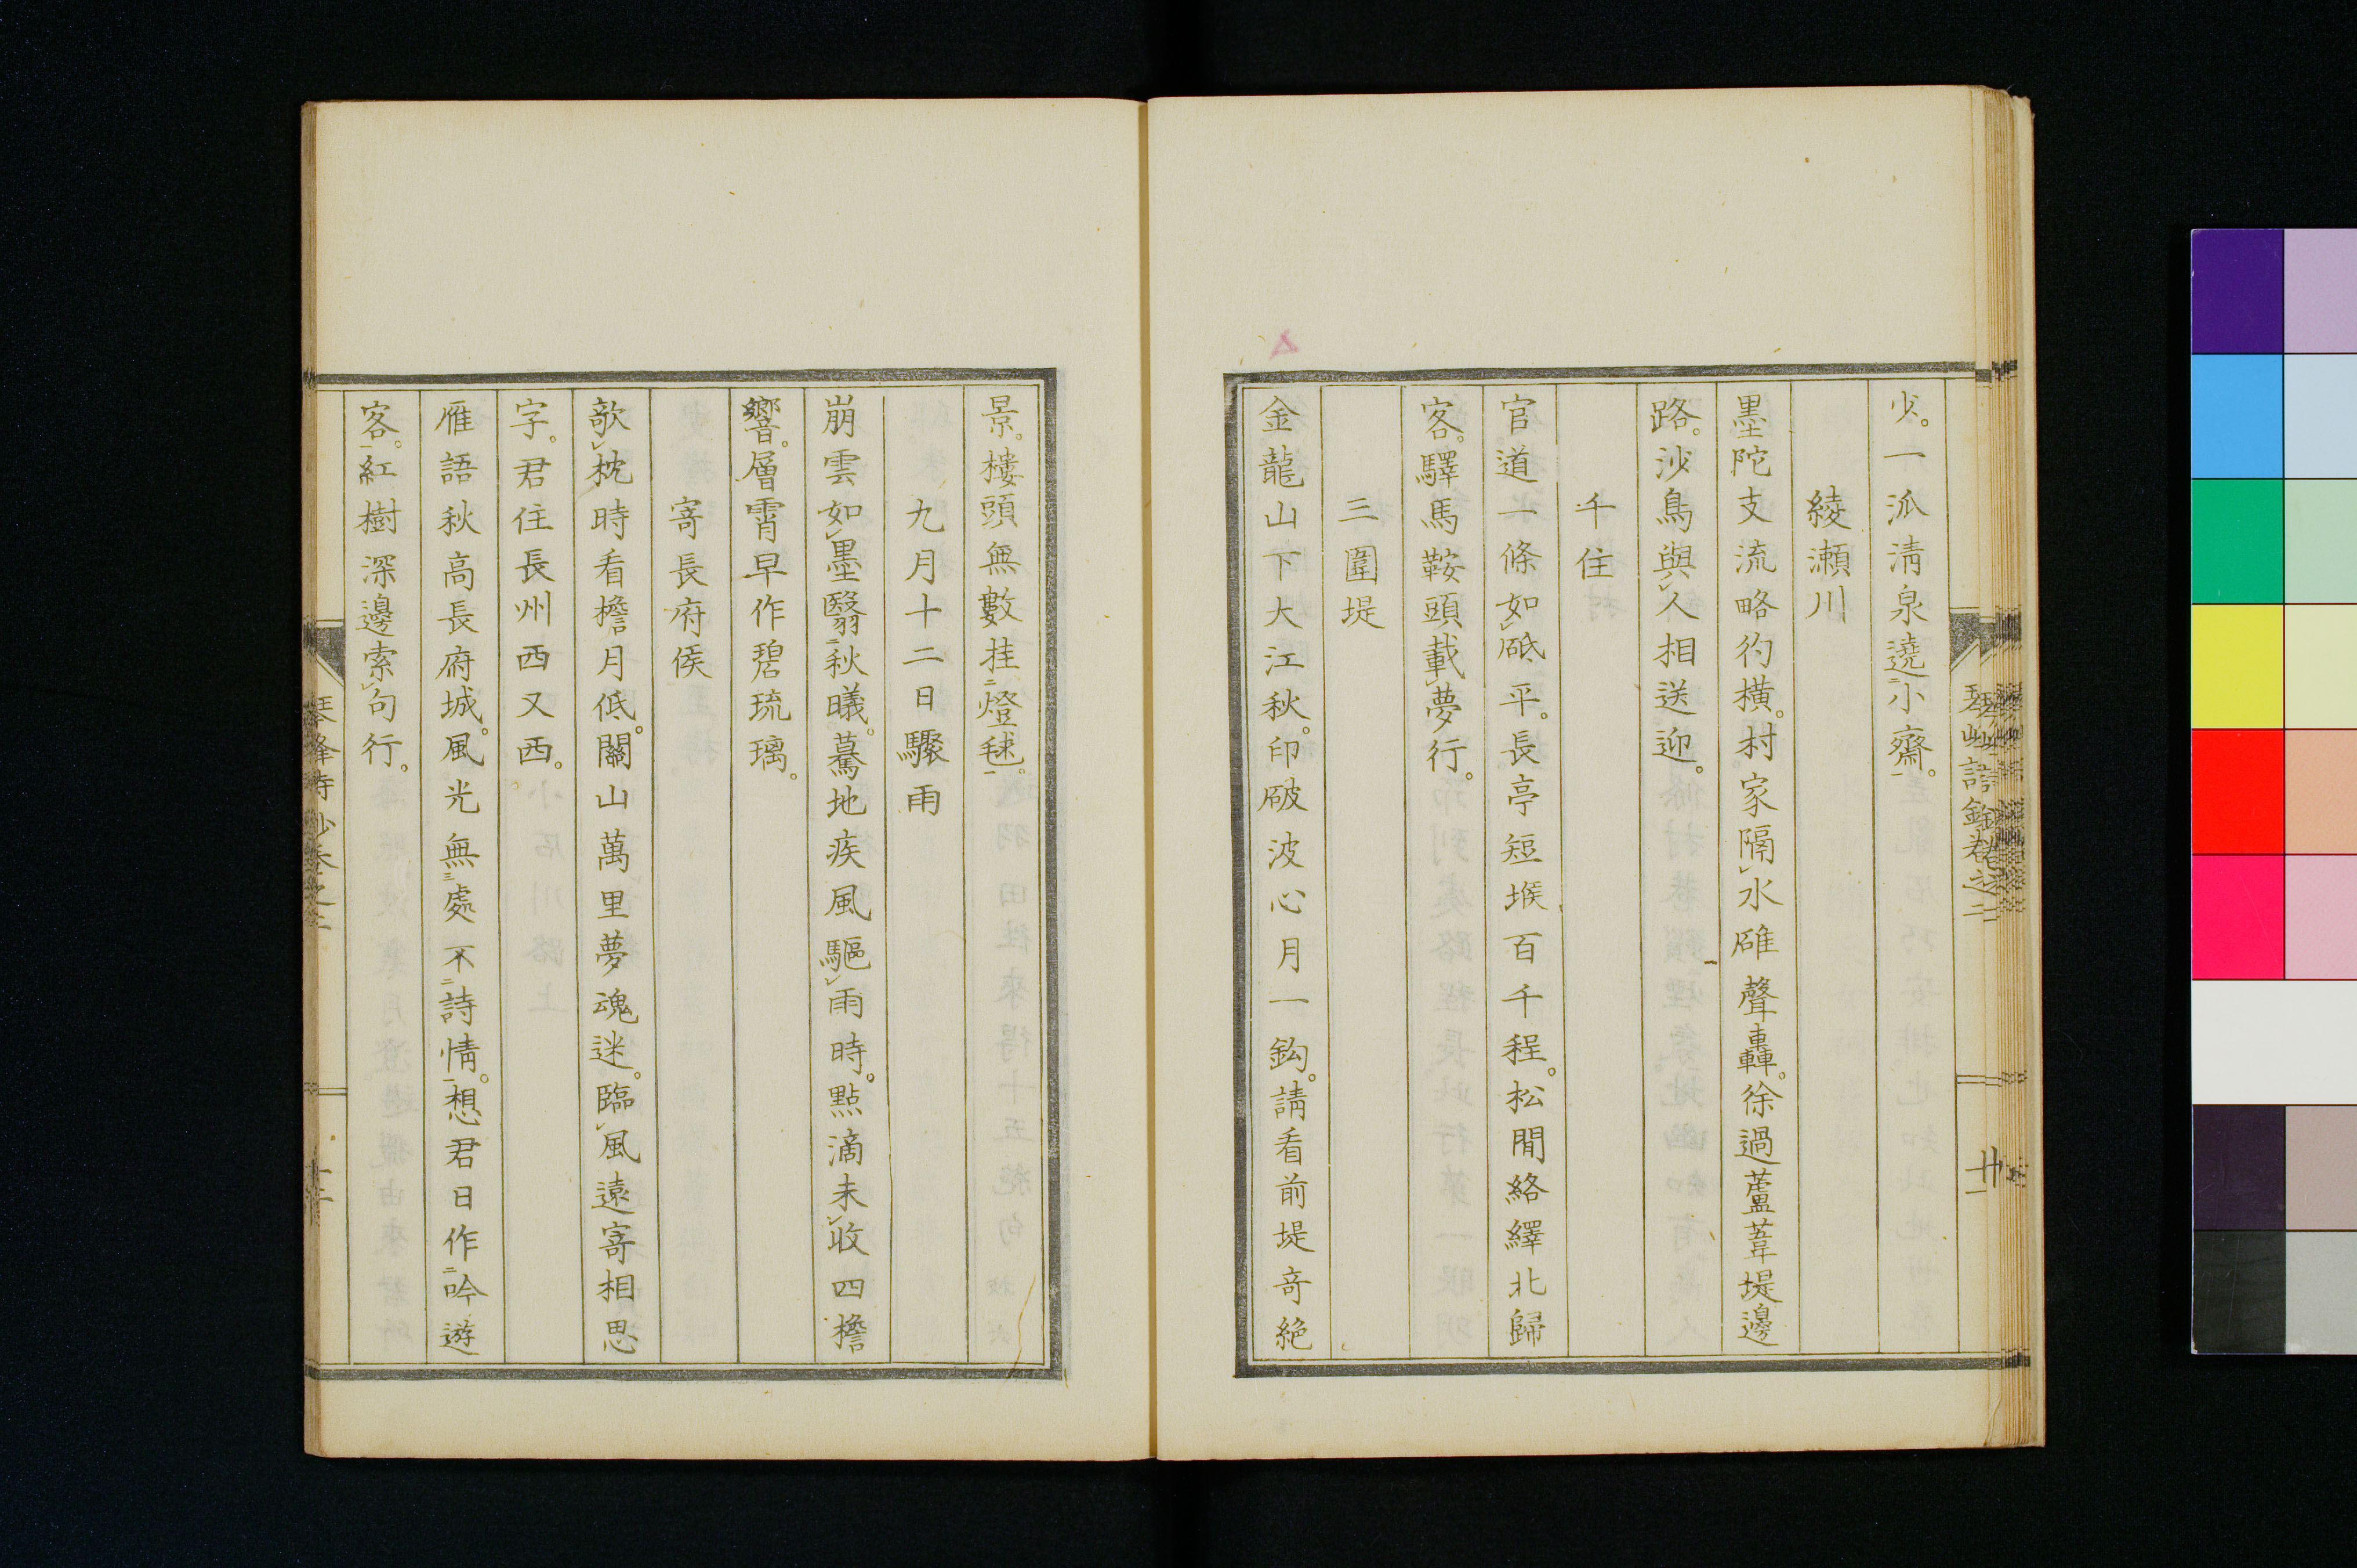 少。一派清泉遶二小齋一。
綾瀬川
墨陀支流略彴横。村家隔レ水碓聲轟。徐過蘆葦堤邊
路。沙鳥與レ人相送迎。
千住
官道一條如レ砥平。長亭短堠百千程。松間絡繹北歸
客。驛馬鞍頭載レ夢行。
三圍堤
金龍山下大江秋。印破波心月一鈎。請看前堤奇絶
景。樓頭無數挂二燈毬一。
九月十二日驟雨
崩雲如レ墨翳二秋曦。驀地疾風驅レ雨時。點滴未レ收四檐
響。層霄早作碧琉璃。
寄長府侯
欹レ枕時看檐月低。關山萬里夢魂迷。臨レ風遠寄相思
字。君住長州西又西。
雁語秋高長府城。風光無三處不二詩情一。想君日作二吟遊
客一。紅樹深邊索レ句行。